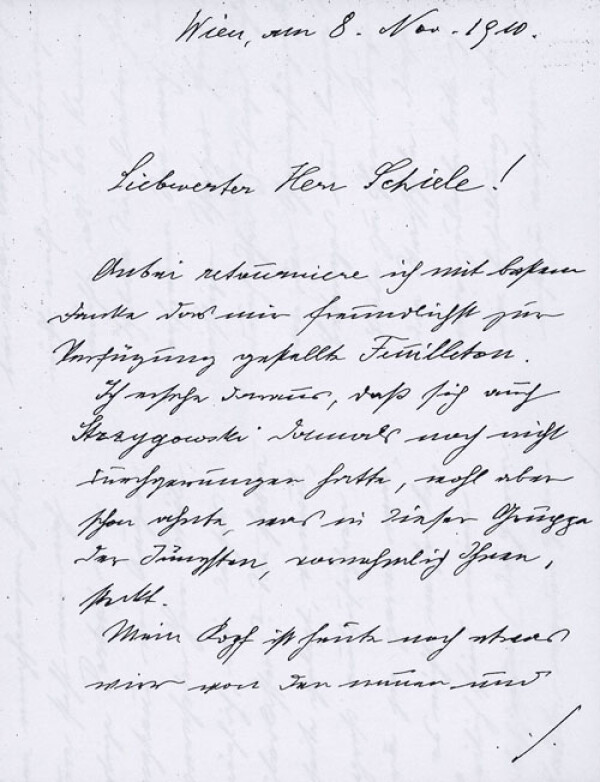 Wien, am 8. Nov. 1910.
Liebwerter Herr Schiele!
Anbei retourniere ich mit bestem
Danke das mir freundlichst zur
Verfügung gestellte Feuilleton.
Ich ersehe daraus, daß sich auch
Strzygowski damals noch nicht
durchgerungen hatte, wohl aber
schon ahnte, was in dieser Gruppe
der Jüngsten, vornehmlich Ihnen,
steckt.
Mein Kopf ist heute noch etwas
wirr von den neuen und
./.